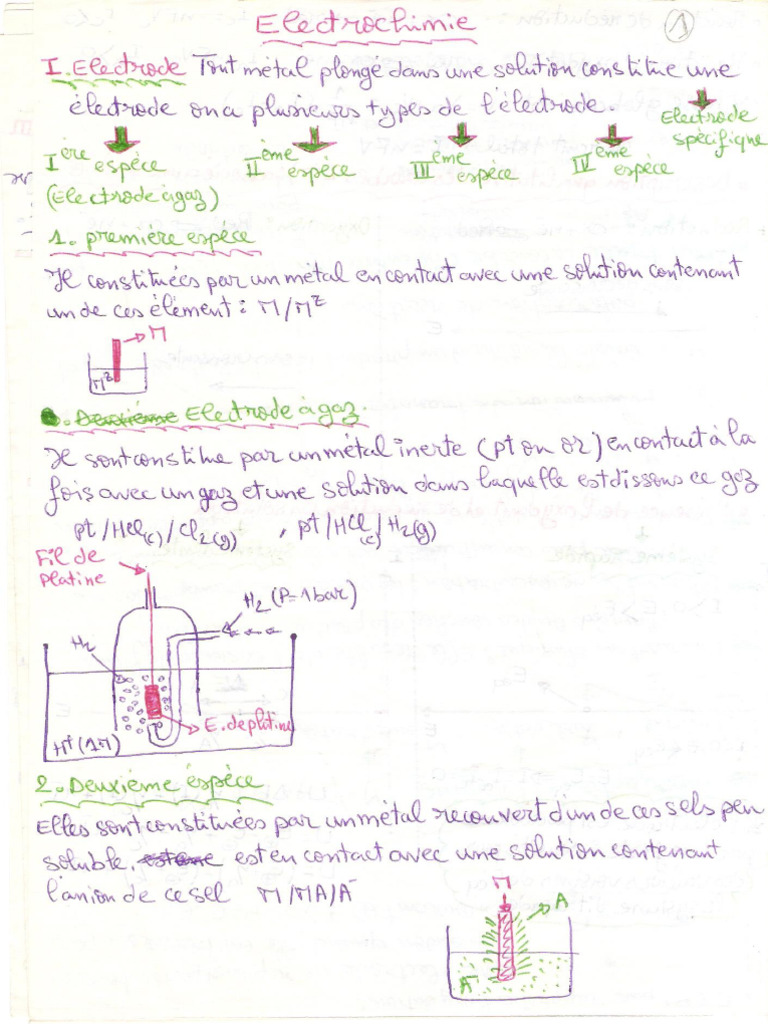 Electrochimie
1
I. Electrode Tout métal plongé dans une solution constitue une
électrode on a plusieurs types de l'électrode.
Ière espèce
(Electrode à gaz)
IIème espèce
IIIème espèce
IVème espèce
Electrode spécifique
1. première espèce
Il constituées par un métal en contact avec une solution contenant
un de ces élément : M/M^Z
M
M^Z
Electrode à gaz.
Il sont constitue par un métal inerte (pt ou or) en contact à la
fois avec un gaz et une solution dans laquelle est dissous ce gaz
pt/HCl(c)/Cl2(g) , pt/HCl(c)/H2(g)
Fil de
platine
H2 (P=1bar)
H2
E. de platine
H+(1M)
2. Deuxième éspèce
Elles sont constituées par un métal recouvert d'un de ces sels peu
soluble. est en contact avec une solution contenant
l'anion de ce sel M/MA/A-
M
A
A-